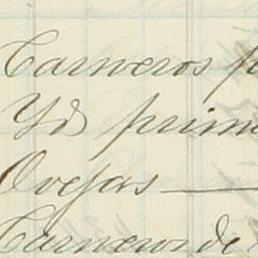 Carneros p
Yd prim
Ovejas
Carneros de